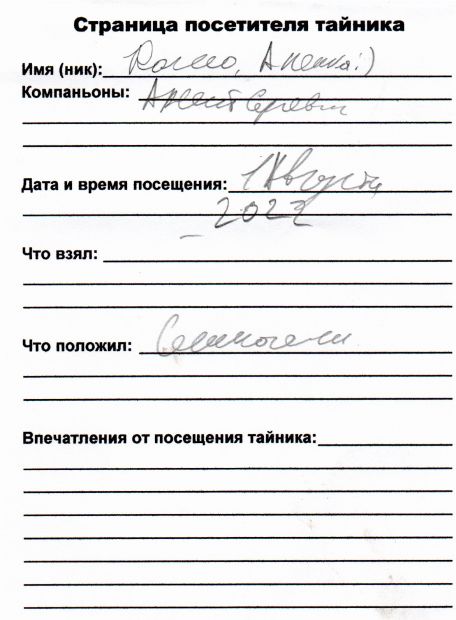 Страница посетителя тайника
Имя (ник): Ромео, Аленка:)
Компаньоны:
Дата и время посещения: 1 Августа
2022
Что взял:
Что положил:
Впечатления от посещения тайника: